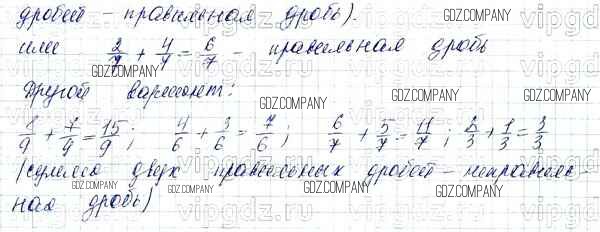 дробей - правильная дробь).
или 2/7 + 4/7 = 6/7 - правильная дробь
Другой вариант:
8/9 + 7/9 = 15/9; 4/6 + 3/6 = 7/6; 6/7 + 5/7 = 11/7; 2/3 + 1/3 = 3/3
(сумма двух правильных дробей - неправиль-
ная дробь)
GDZ.COMPANY
vipgdz.ru